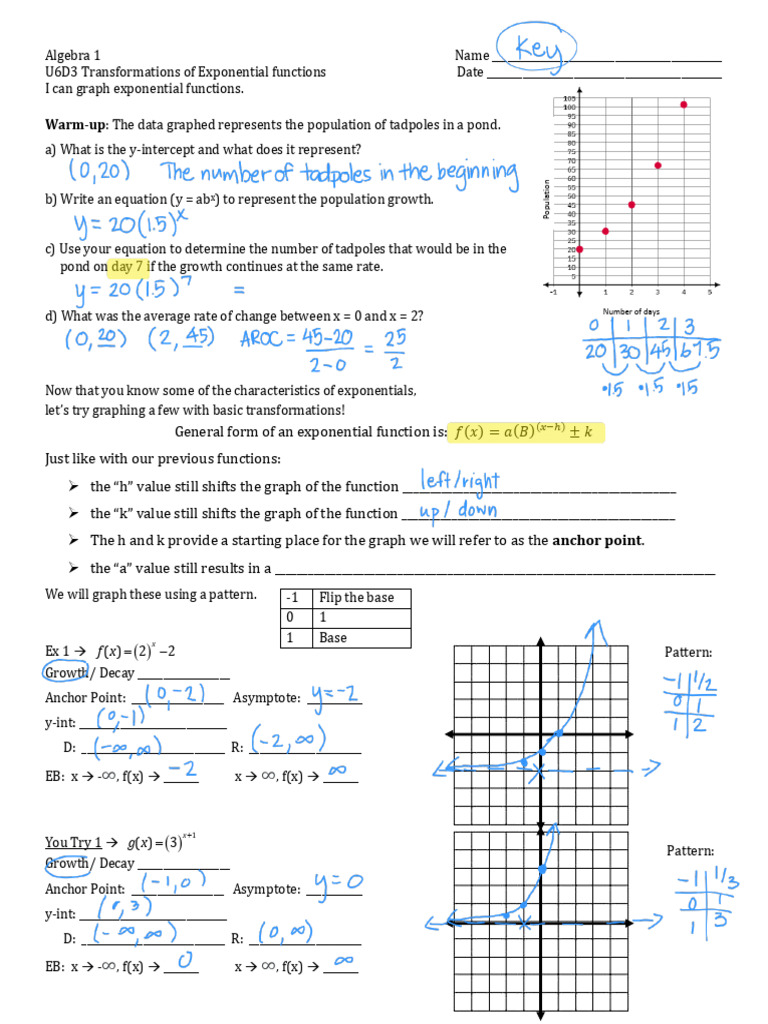 Algebra 1 Name Key
U6D3 Transformations of Exponential functions Date
I can graph exponential functions.
Warm-up: The data graphed represents the population of tadpoles in a pond.
a) What is the y-intercept and what does it represent?
(0,20) The number of tadpoles in the beginning
b) Write an equation (y = abˣ) to represent the population growth.
y = 20(1.5)ˣ
c) Use your equation to determine the number of tadpoles that would be in the
pond on day 7 if the growth continues at the same rate.
y = 20(1.5)⁷ =
d) What was the average rate of change between x = 0 and x = 2?
(0,20) (2,45) AROC = 45-20/2-0 = 25/2
105
100
95
90
85
80
75
70
65
60
55
50
45
40
35
30
25
20
15
10
5
Population
-1 1 2 3 4 5
Number of days
0 1 2 3
20 30 45 67.5
·1.5 ·1.5 ·1.5
Now that you know some of the characteristics of exponentials,
let's try graphing a few with basic transformations!
General form of an exponential function is: f(x) = a(B)⁽ˣ⁻ʰ⁾ ± k
Just like with our previous functions:
➤ the "h" value still shifts the graph of the function left/right
➤ the "k" value still shifts the graph of the function up/down
➤ The h and k provide a starting place for the graph we will refer to as the anchor point.
➤ the "a" value still results in a
We will graph these using a pattern.
-1 Flip the base
0 1
1 Base
Ex 1 → f(x) = (2)ˣ − 2
Growth / Decay
Anchor Point: (0,-2) Asymptote: y=-2
y-int: (0,-1)
D: (-∞,∞) R: (-2,∞)
EB: x → -∞, f(x) → -2 x → ∞, f(x) → ∞
Pattern:
-1 1/2
0 1
1 2
You Try 1 → g(x) = (3)ˣ⁺¹
Growth / Decay
Anchor Point: (-1,0) Asymptote: y=0
y-int: (0,3)
D: (-∞,∞) R: (0,∞)
EB: x → -∞, f(x) → 0 x → ∞, f(x) → ∞
Pattern:
-1 1/3
0 1
1 3